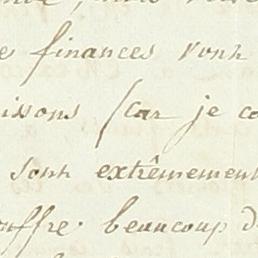 finances vont
issons (car je co
sont extrêmement
ouffre beaucoup d